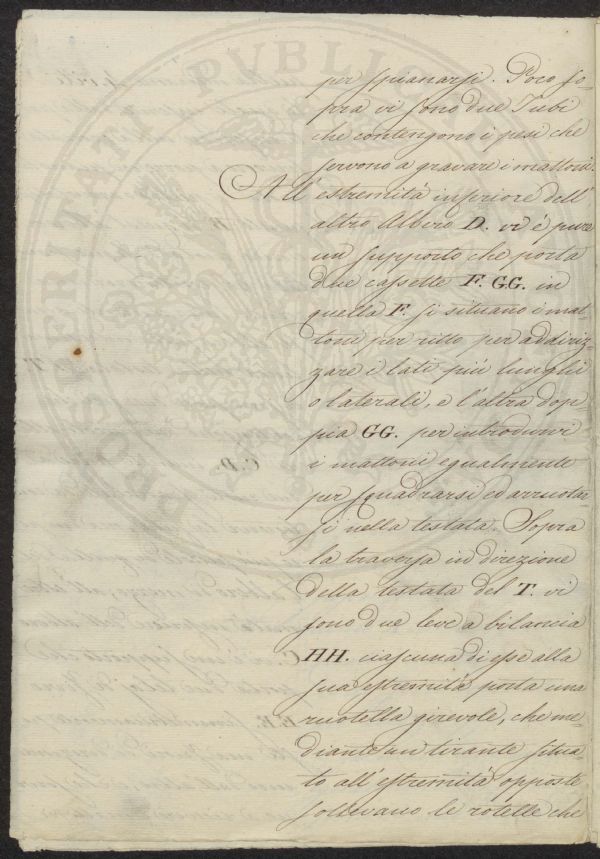 per spianarsi. Poco so-
pra vi sono due Tubi
che contengono i pesi che
servono a gravare i mattoni.
All'estremità inferiore dell'
altro Albero D. vi è pure
un supporto che porta
due cassette F. GG. in
quella F. si situano i mat-
toni per ritto per addiriz-
zare i lati più lunghi
o laterali, e l'altra dop-
pia GG. per introdurvi
i mattoni egualmente
per squadrarsi ed arruotar-
si nella testata. Sopra
la traversa in direzione
della testata del T. vi
sono due leve a bilancia
HH. ciascuna di esse alla
sua estremità porta una
ruotella girevole, che me-
diante un tirante situa-
to all'estremità opposte
sollevano le rotelle che
PROSPERITATI PVBLICAE